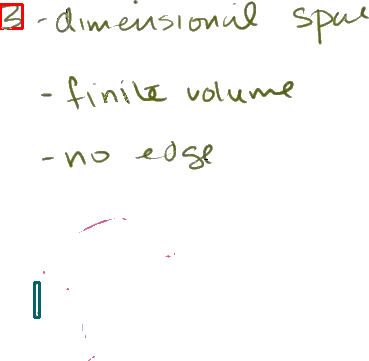 3-dimensional space
- finite volume
- no edge